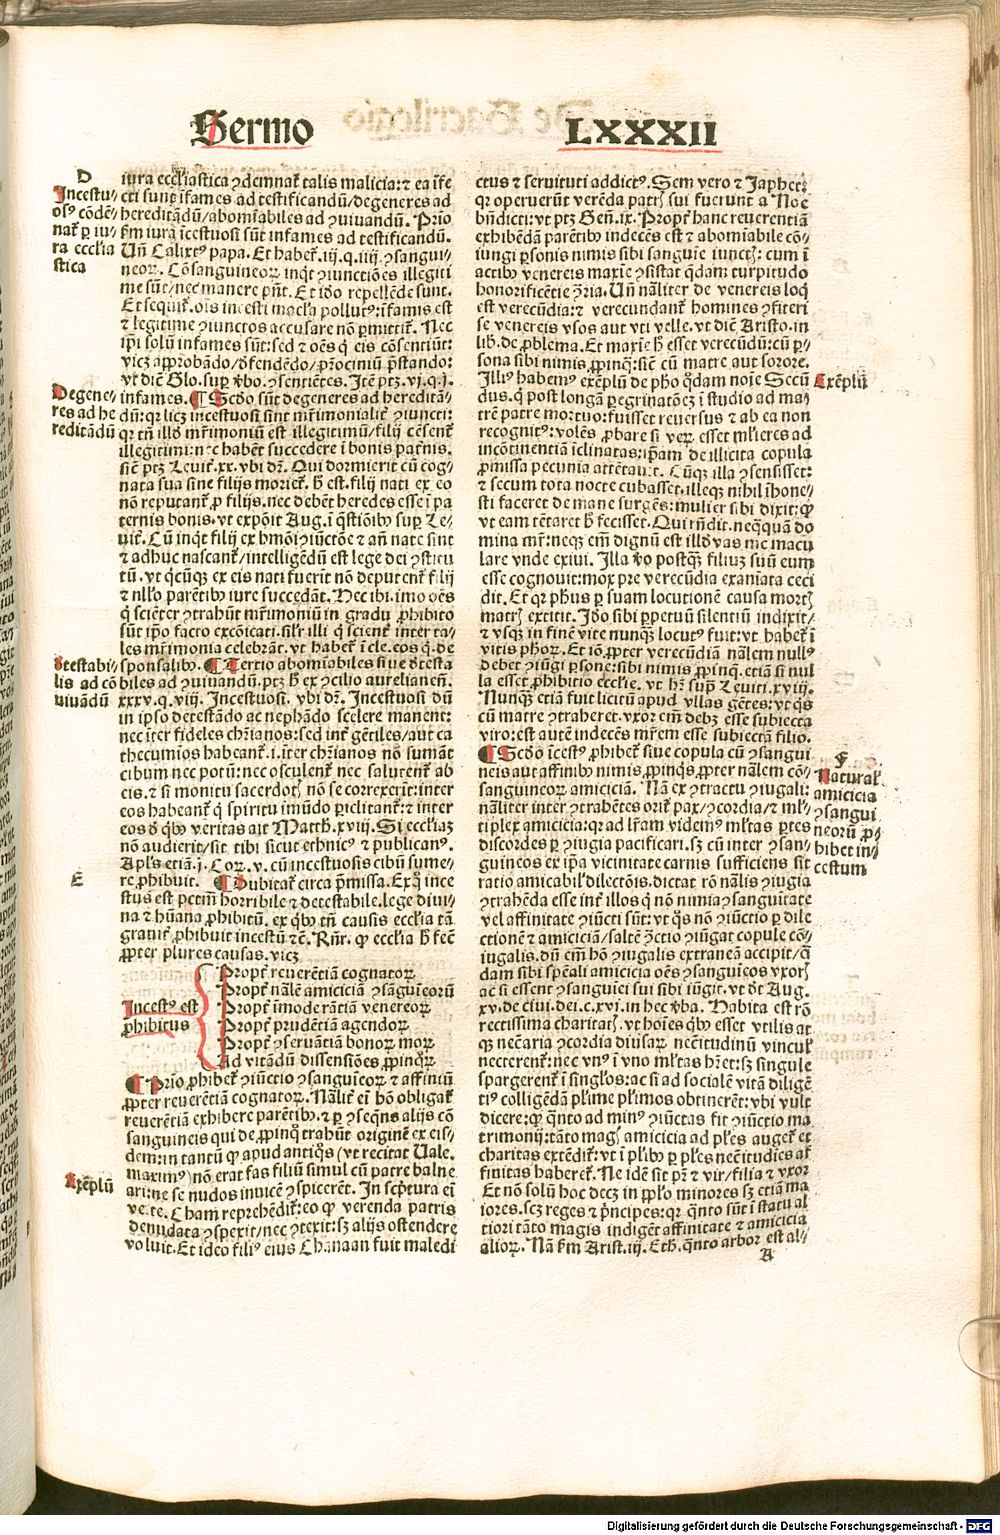 Sermo LXXXII
D
Incestu/
osꝰ cōdē/
nat᷑ ꝑ iu/
ra eccl̄ia
stica
iura eccl̄iastica ꝯdemnat᷑ talis malicia: ⁊ ea īfe
cti sunt īfames ad testificandū/degeneres ad
hereditādū/abomīabiles ad ꝯuiuandū. Prio
Un̄ Calixtꝰ papa. Et habet᷑. iij. q. iiij. ꝯsangui/
neoꝝ. Cōsanguineoꝝ inqͥt ꝯiunctiōes illegiti
me sūt/nec manere pn̄t. Et iḋo repellēde sunt.
⁊ legitime ꝯiunctos accusare nō ꝑmittit᷑. Nec
ip̄i solū infames sūt: sed ⁊ oēs q̇ eis cōsentiūt:
Degene/
res ad he
reditādū
infames. ¶ Scḋo sūt degeneres ad hereditā/
dū: qꝛ licꝫ incestuosi sunt mr̄imonialit᷑ ꝯiuncti:
qꝛ tn̄ illḋ mr̄imoniū est illegitimū/filij cēsent᷑
illegitimi: nec habēt succedere ī bonis patnis.
sic̄ ptꝫ Leuit᷑. xx. vbi dr̄. Qui dormierit cū cog/
nata sua sine filijs moriet᷑. h̄ est. filij nati ex eo
nō reputant᷑ ꝓ filijs. nec debēt heredes esse ī pa
ternis bonis. vt expōit Aug. ī q̄stiōibꝰ sup̄ Le/
uit᷑. Cū inqͥt filij ex hmōi ꝯiūctōe ⁊ an̄ nate sint
⁊ adhuc nascant᷑/intelligēdū est lege dei ꝯstitu
tū. vt qͥcūqꝫ ex eis nati fuerit nō deputent᷑ filij
⁊ nll̄o parētibꝰ iure succedāt. Nec ibi. imo oēs
q̇ sciēter ꝯtrahūt mr̄imoniū in gradu ꝓhibito
sūt ip̄o facto excōicati. sil̄r illi q̇ scient᷑ inter ta/
les mr̄imonia celebrāt. vt habet᷑ ī cle. eos q̇. de
detestabi/
lis ad cō
uiuādū
sponsalibꝰ. ¶ Tertio abomīabiles siue detesta
biles ad ꝯuiuandū. ptꝫ h̄ ex ꝯcilio aurelianen̄.
xxxv. q. viij. Incestuosi. vbi dr̄. Incestuosi dū
in ipso detestādo ac nephādo scelere manent:
nec iter fideles chr̄ianos: sed int᷑ gētiles/aut ca
thecumīos habeant᷑. i. īter chr̄ianos nō sumāt
cibum nec potū: nec osculent᷑ nec salutent᷑ ab
eis. ⁊ si moniti sacerdotꝭ nō se correxerīt: inter
eos habeant᷑ q̇ spiritu imūdo ꝑiclitant᷑: ⁊ inter
eos ḋ qͥbꝰ veritas ait Matth. xviij. Si eccl̄iaꝫ
nō audierit/sit tibi sicut ethnicꝰ ⁊ publicanꝰ.
E
Apl̄s etiā. j. Coꝝ. v. cū incestuosis cibū sume/
re ꝓhibuit. ¶ Dubitat᷑ circa p̄missa. Ex q̇ ince
stus est pctm̄ horribile ⁊ detestabile. lege diui/
na ⁊ hūana ꝓhibitū. ex qͥbꝰ tn̄ causis eccl̄ia tā
grauit᷑ ꝓhibuit incestū ⁊c̄. Rn̄r. ꝙ eccl̄ia h̄ fec̄
ꝓpter plures causas. vicꝫ
Incestꝰ est
ꝓhibitus
Propt᷑ reuerētiā cognatoꝝ
Propt᷑ nālē amiciciā ꝯsāguīeorū
Propt᷑ īmoderātiā venereoꝝ
Propt᷑ prudētiā agendoꝝ
Propt᷑ ꝯseruātiā bonoꝝ moꝝ
Ad vitādū dissensiōes ꝓpinqͦꝝ
¶ Prīo ꝓhibet᷑ ꝯiūctio ꝯsanguīeoꝝ ⁊ affiniū
ꝓpter reuerētiā cognatoꝝ. Nālit᷑ eī hō obligat᷑
reuerētiā exhibere parētibꝰ. ⁊ ꝑ ꝯseqn̄s alijs cō
sanguineis qui de ꝓpinqͦ trahūt originē ex eis/
dem: in tantū ꝙ apud antiqͦs (vt recitat Uale.
maximꝰ) nō erat fas filiū simul cū patre balne
Exēplū
ari: ne se nudos inuicē ꝯspicerēt. In scp̄tura eī
ve. te. Cham reprehēdit᷑: eo ꝙ verenda patris
denudata ꝯspexit/nec ꝯtexit: sꝫ alijs ostendere
voluit. Et ideo filiꝰ eius Chanaan fuit maledi
ctus ⁊ seruituti addictꝰ. Sem vero ⁊ Japhet:
qꝛ operuerūt verēda patrꝭ sui fuerunt a Noe
bn̄dicti: vt ptꝫ Gen̄. ix. Propt᷑ hanc reuerentiā
exhibēdā parētibꝰ indecēs est ⁊ abomīabile cō/
iungi ꝑsonis nimis sibi sanguīe iunctꝭ: cum ī
actibꝰ venereis maxīe ꝯsistat q̄dam turpitudo
honorificētie ꝯ̄ria. Un̄ nāliter de venereis loqͥ
est verecūdia: ⁊ verecundant᷑ homines ꝯfiteri
se venereis vsos aut vti velle. vt dic̄ Aristo. in
lib. de ꝓblema. Et maxīe h̄ esset verecūdū: cū ꝑ/
sona sibi nimis ꝓpinq̄: sic̄ cū matre aut sorore.
Exēplū
Illiꝰ habemꝰ exēplū de ph̄o q̄dam noīe Secū
dus. q̇ post longā ꝑegrinatōeꝫ ī studio ad ma/
trē patre mortuo: fuisset reuersus ⁊ ab ea non
recognitꝰ: volēs ꝓbare si veꝝ esset ml̄ieres ad
incōtinentiā īclinatas: ip̄am de illicita copula
ꝓmissa pecunia attētauit. Cūqꝫ illa ꝯsensisset:
⁊ secum tota nocte cubasset. illeqꝫ nihil īhone/
sti faceret de mane surgēs: mulier sibi dixit: ꝙ
vt eam tētaret h̄ fecisset. Qui rn̄dit. neqͣquā do
mina mr̄: neqꝫ em̄ dignū est illḋ vas me macu
lare vnde exiui. Illa ꝟo postqͣꝫ filiuꝫ suū eum
esse cognouit: mox pre verecūdia exanīata ceci
dit. Et qꝛ ph̄us ꝑ suam locutionem causa mortꝭ
matrꝭ extitit. Iḋo sibi ꝑpetuū silentiū indixit/
⁊ vsqꝫ in finē vite nunqͣꝫ locutꝰ fuit: vt habet᷑ ī
vitis ph̄oꝝ. Et iō ꝓpter verecūdiā nālem nullꝰ
debet ꝯiūgi ꝑsone: sibi nimis ꝓpinq̄. etiā si nul
la esset ꝓhibitio eccl̄ie. vt hr̄ sup̄ Leuiti. xviij.
Nunqͣꝫ etiā fuit licitū apud vllas gētes: vt qͥs
cū matre ꝯtraheret. vxor em̄ debꝫ esse subiecta
viro: est autē indecēs mr̄em esse subiectā filio.
F
Natural̓
amicicia
ꝯsangui
neorū ꝓ/
hibet in/
cestum
¶ Scḋo īcestꝰ ꝓhibet᷑ siue copula cū ꝯsangui
neis aut affinibꝰ nimis ꝓpinqͥs ꝓpter nālem cō/
sanguineoꝝ amiciciā. Nā ex ꝯtractu ꝯiugali:
nāliter inter ꝯtrahētes orit᷑ pax/ꝯcordia/⁊ ml̄/
tiplex amicicia: qꝛ ad lr̄am videmꝰ ml̄tas ꝑtes
discordes ꝑ ꝯiugia pacificari. sꝫ cū inter ꝯsan/
guineos ex ip̄a vicinitate carnis sufficiens sit
ratio amicabil̓ dilectōis. dictat rō nālis ꝯiugia
ꝯtrahēda esse int᷑ illos q̇ nō nimia ꝯsanguītate
vel affinitate ꝯiūcti sūt: vt qͥs nō ꝯiūctio ꝑ dile
ctionē ⁊ amiciciā/saltē ꝯ̄ctio ꝯiūgat copule cō/
iugalis. dū em̄ hō ꝯiugalis extraneā accipit/q̄
dam sibi spēali amicicia oēs ꝯsanguīeos vxorꝭ
ac si essent ꝯsanguīei sui sibi iūgit. vt ḋt Aug.
xv. de ciui. dei. c. xvi. in hec ꝟba. Habita est rō
rectissima charitatꝭ. vt hoīes qͥbꝰ esset vtilis at
qꝫ necāria ꝯcordia diuisaꝝ necītudinū vincul̓
necterent᷑: nec vnꝰ ī vno ml̄tas hr̄et: sꝫ singule
spargerent᷑ ī singl̄os: ac si ad socialē vitā diligē
tiꝰ colligēdā pl̄ime pl̄imos obtinerēt: vbi vult
dicere: ꝙ qͣnto ad minꝰ ꝯiūctas fit ꝯiūctio ma
trimonij: tāto magꝭ amicicia ad pl̄es auget᷑ et
charitas extēdit᷑: vt ī pl̄ibꝰ ꝑ pl̄es necītudies af
finitas haberet᷑. Ne idē sit pr̄ ⁊ vir/filia ⁊ vxor
Et nō solū hoc decꝫ in pp̄lo minores sꝫ etiā ma
iores. scꝫ reges ⁊ p̄ncipes: qꝛ qͣnto sūt ī statu al
tiori tāto magis indigēt affinitate ⁊ amicicia
alioꝝ. Nā ẜm Arist. iij. Eth̄. qͣnto arbor est al/
A
Digitalisierung gefördert durch die Deutsche Forschungsgemeinschaft - DFG